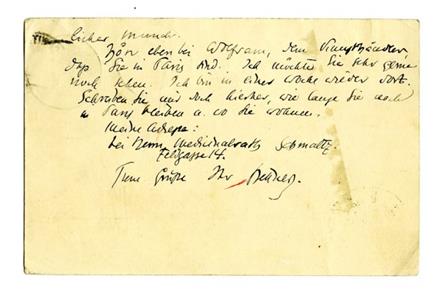 Lieber Munch.
Höre eben bei Wolfram, dem Kunsthändler
daß Sie in Paris sind. Ich möchte Sie sehr gerne
noch sehen. Ich bin in einer Woche wieder dort.
Schreiben Sie mir doch hierher, wie lange Sie noch
in Paris bleiben u. wo Sie wohnen.
Meine Adresse:
bei Herrn Medicinalrath Schmaltz
14.
Ihr